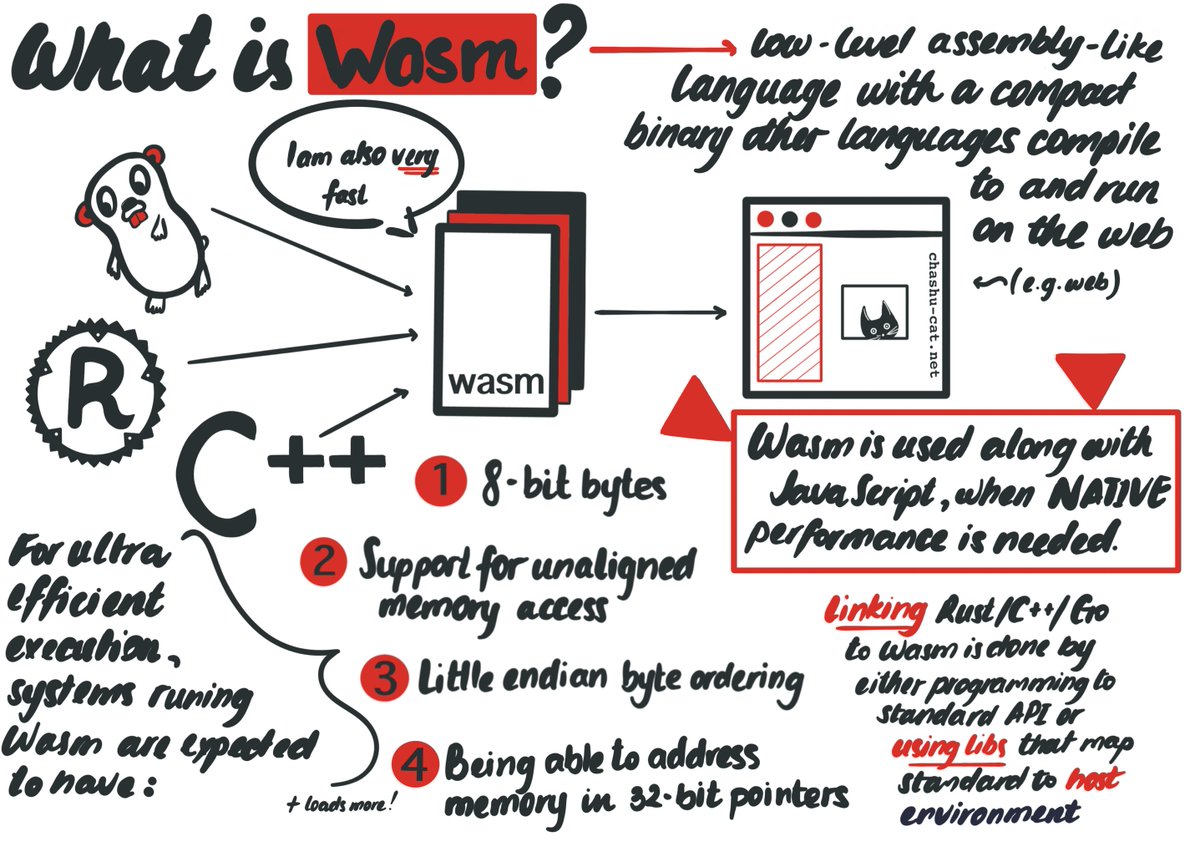 What is Wasm?
low-level assembly-like
language with a compact
binary other languages compile
to and run
on the web
(e.g. web)
I am also very
fast
wasm
chashu-cat.net
R
C++
Wasm is used along with
JavaScript, when NATIVE
performance is needed.
For ultra
efficient
execution,
systems runing
Wasm are expected
to have:
1 8-bit bytes
2 Support for unaligned
memory access
3 Little endian byte ordering
4 Being able to address
memory in 32-bit pointers
+ loads more!
linking Rust/C++/Go
to wasm is done by
either programming to
standard API or
using libs that map
standard to host
environment